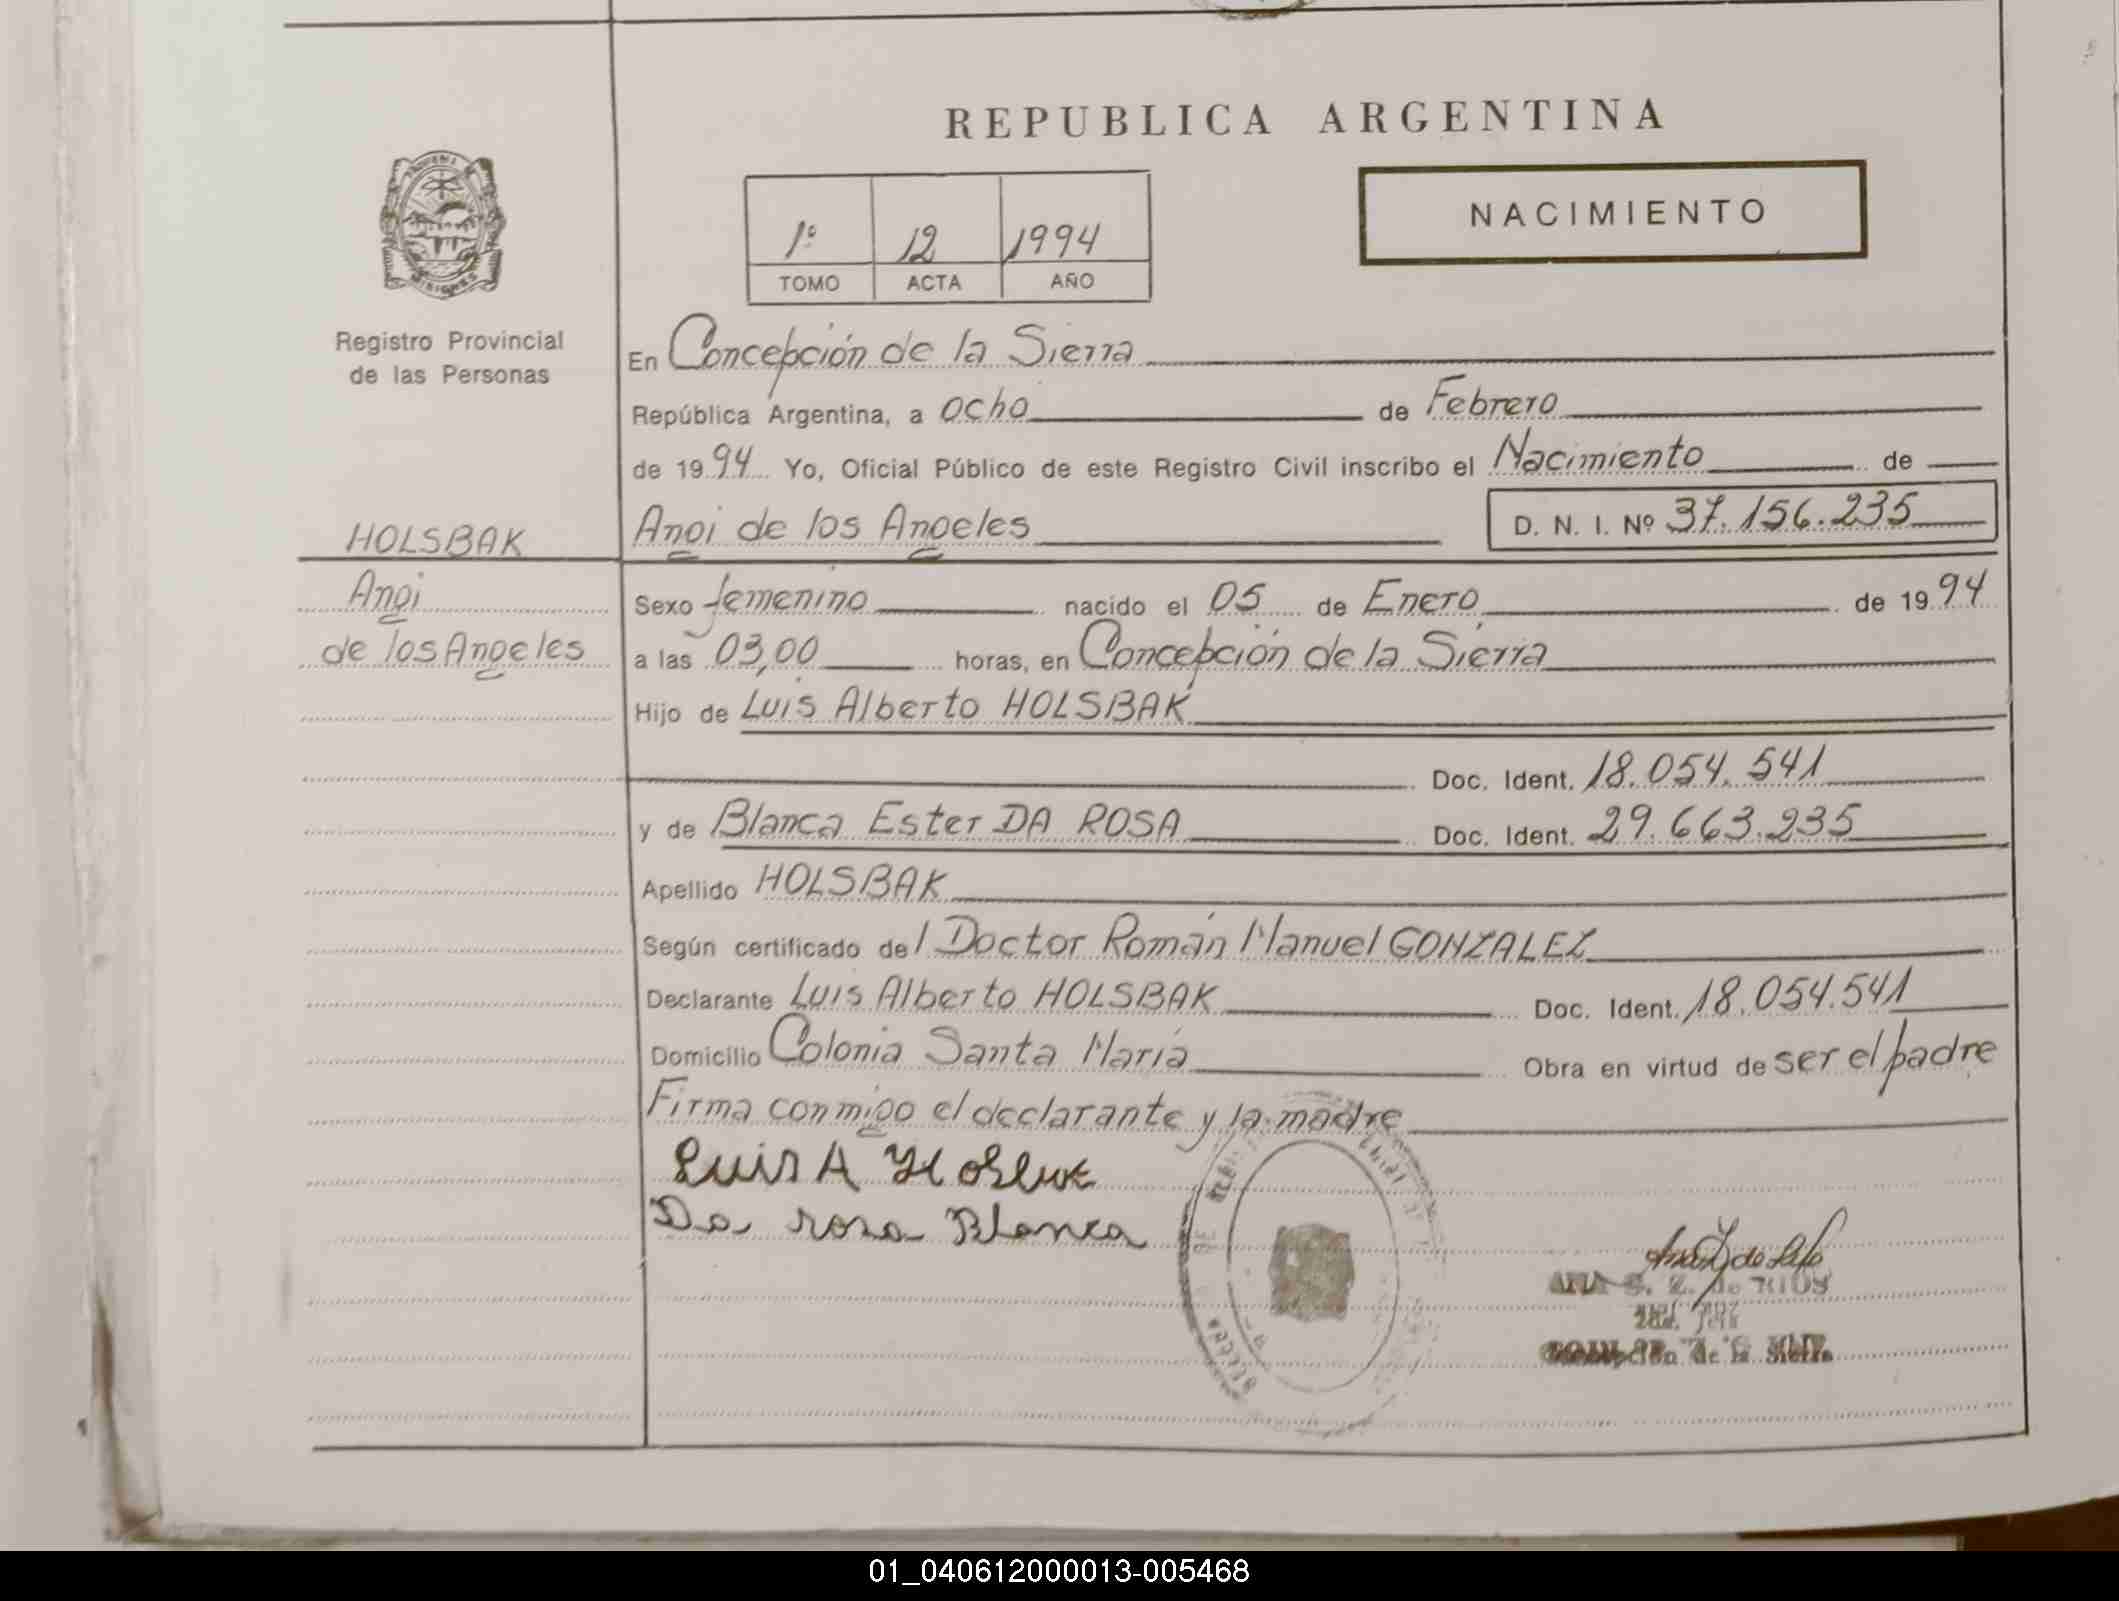 REPUBLICA ARGENTINA
NACIMIENTO
1º 12 1994
TOMO ACTA AÑO
Registro Provincial
de las Personas
En Concepción de la Sierra
República Argentina, a ocho de Febrero
de 1994 Yo, Oficial Público de este Registro Civil inscribo el Nacimiento de
HOLSBAK
Angi de los Angeles D. N. I. Nº 37.156.235
Angi
de los Angeles
Sexo femenino nacido el 05 de Enero de 1994
a las 03,00 horas, en Concepción de la Sierra
Hijo de Luis Alberto HOLSBAK
Doc. Ident. 18.054.541
y de Blanca Ester DA ROSA Doc. Ident. 29.663.235
Apellido HOLSBAK
Según certificado del Doctor Román Manuel GONZALEZ
Declarante Luis Alberto HOLSBAK Doc. Ident. 18.054.541
Domicilio Colonia Santa María Obra en virtud de ser el padre
Firma conmigo el declarante y la madre
Luis A
Da rosa Blanca
ANA S. Z. de RIOS
Concepción de la Sierra
01_040612000013-005468